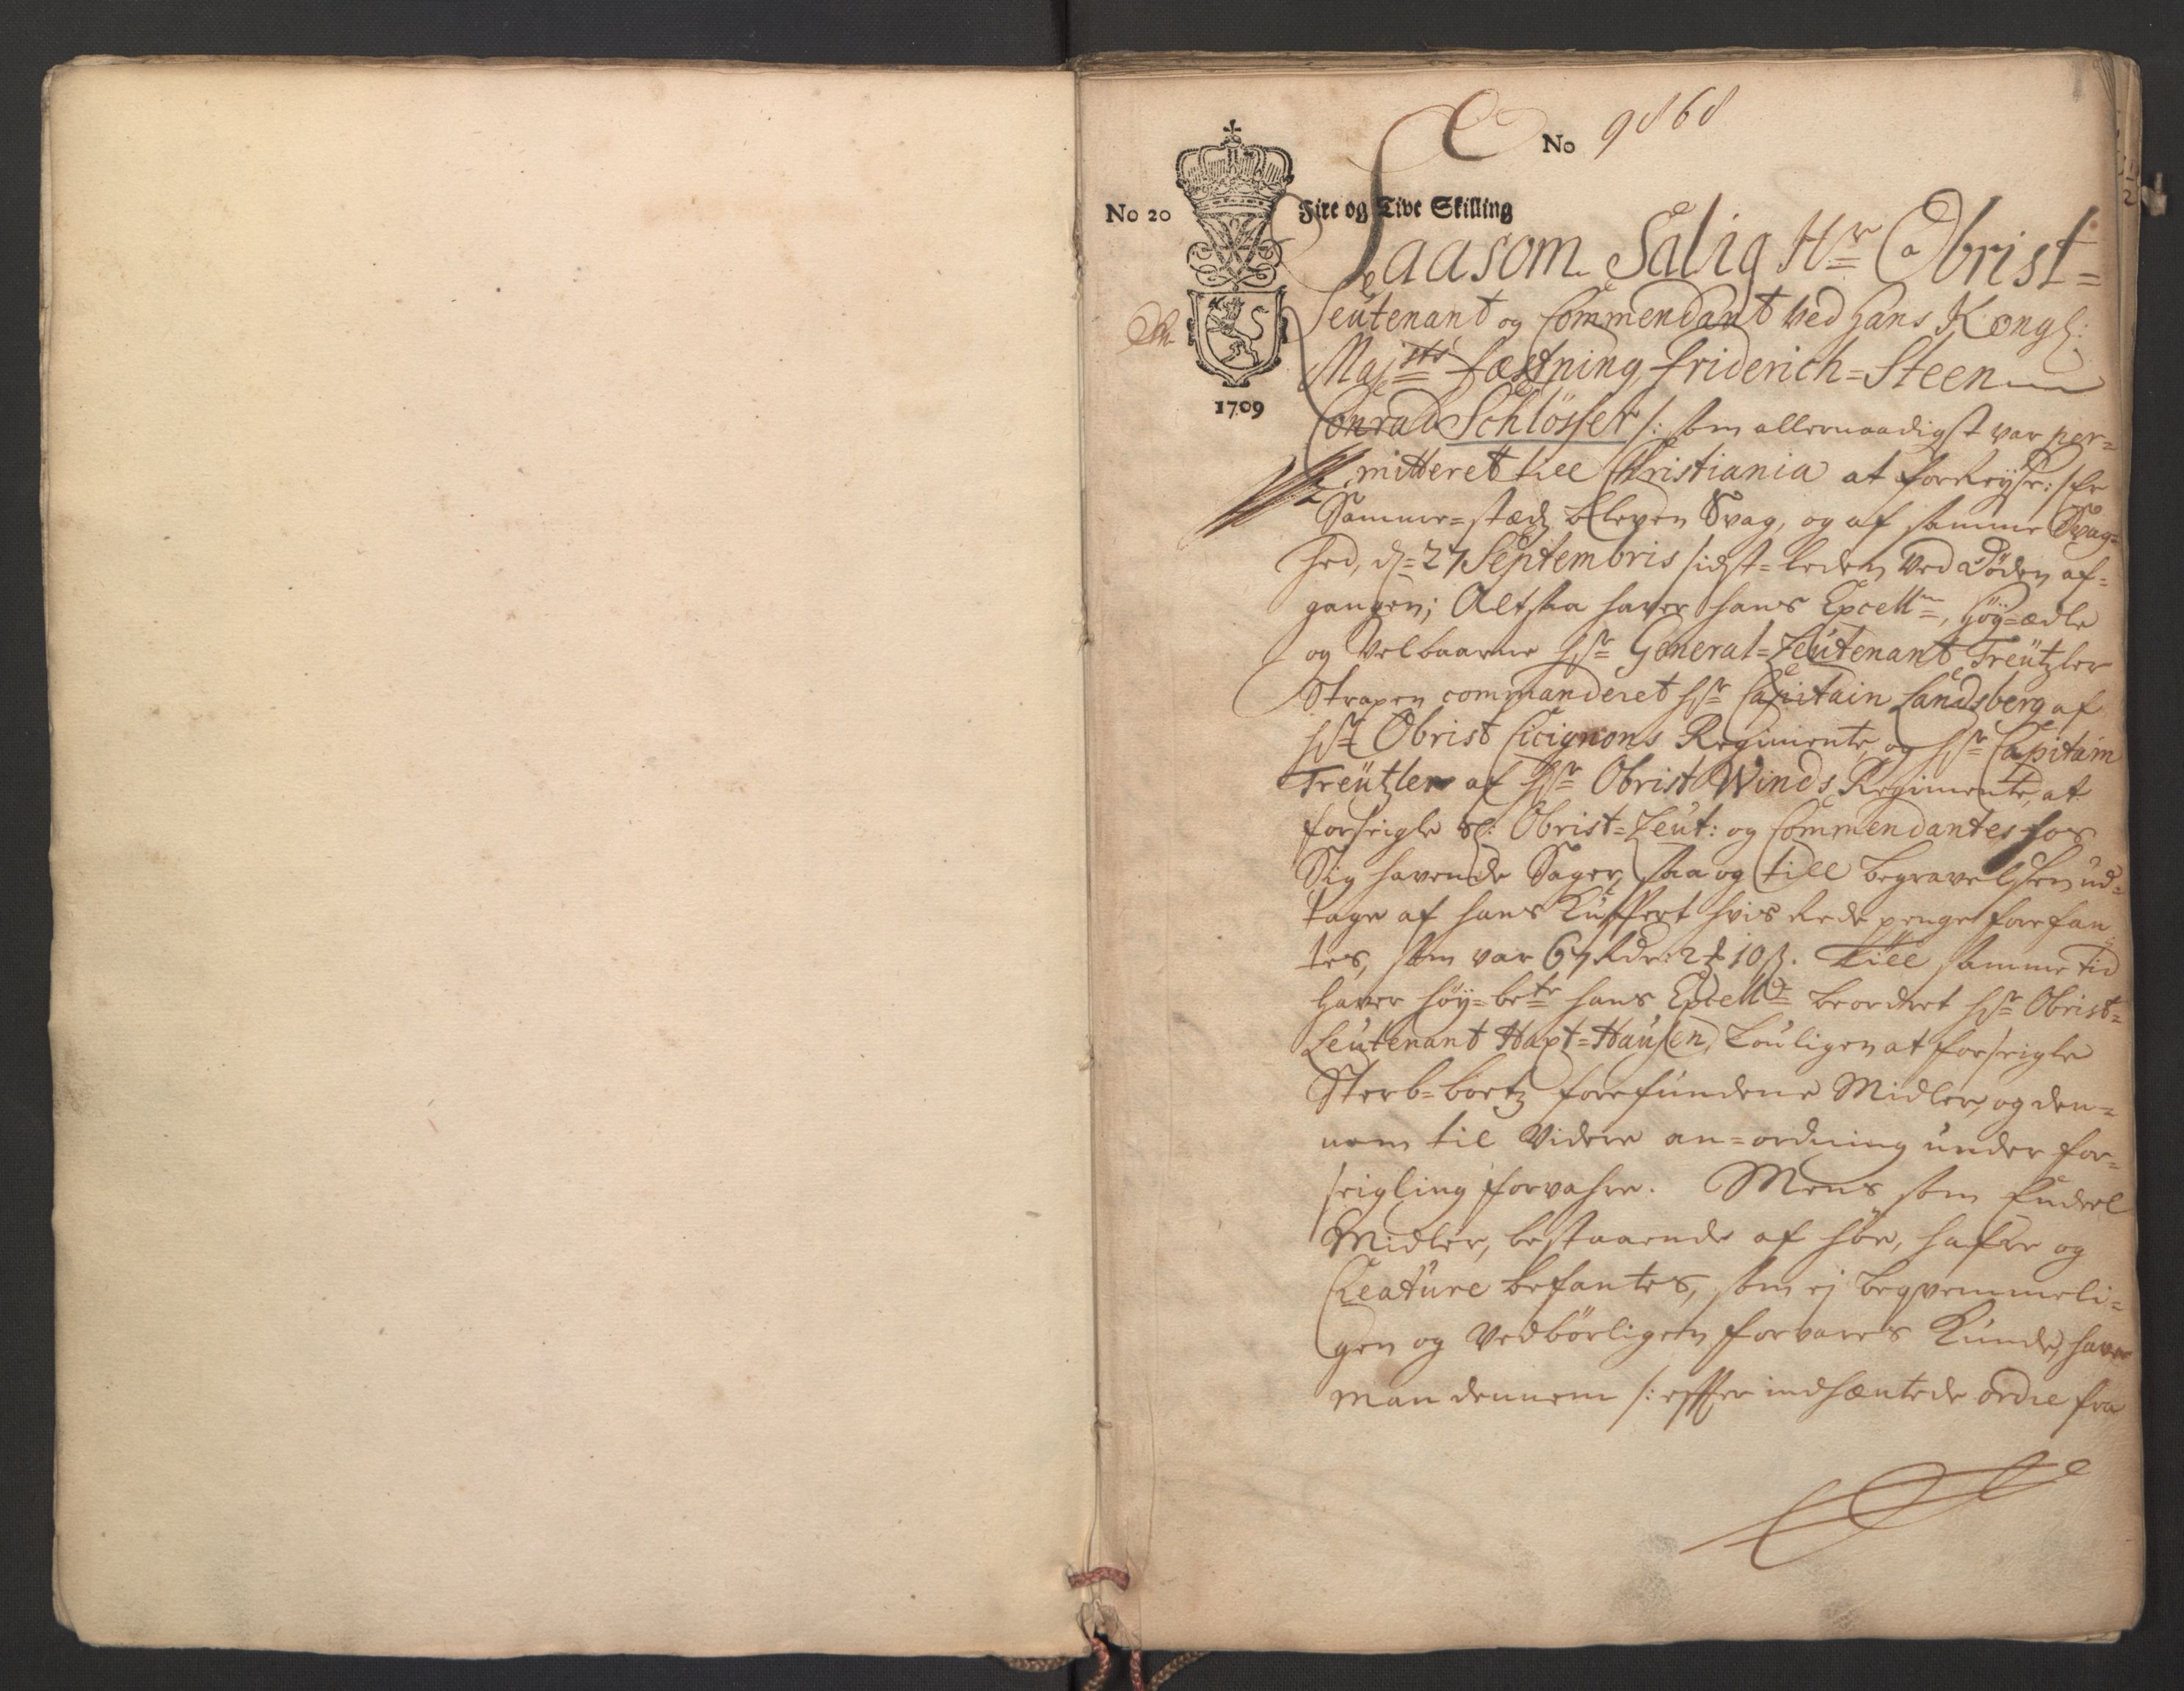 No 9868
No 20 Fire og Tive Skilling
1709
Saasom Salig Hr Obrist=
Leutenant og Commendant ved Hans Kongl:
Majsts Fæstning Friderich=Steen
Conrad Schlösser /: som allernaadigst var per=
mitteret till Christiania at forreyse :/ er
Samme=stædz bleven Svag, og af samme Svag=
hed, d= 27 Septembris sidst=leden ved Døden af=
gangen; Altsaa haver hans Excellce, Höy=ædle
og Velbaarne Hr General=Leutenant Treützler
Straxen commanderet Hr Capitain Landsberg af
Hr Obrist Cicignons Regimente, og Hr Capitain
Treützler af Hr Obrist Winds Regimente, at
forseigle Sl: Obrist=Leut: og Commendantes hos
Sig havende Sager, saa og till begravelsen ud=
tage af hans Kuffert hvis Rede penge forefan=
tes, som var 67 Rdr: 2 ₰ 10 ß. Till samme tid
haver höy=bete hans Excellce beordret Hr Obrist=
Leutenant Haxt=Hausen, Louligen at forseigle
Sterb=boetz forefundene Midler, og den=
nem til Videre an=ordning under for=
seigling forvahre. Mens som Endeel
Midler, bestaaende af höe, hafre og
Creature befantes, som ej beqvemmeli=
gen og Vedbörligen forvares Kunde, haver
man dennem /: efter indhæntede ordre fra